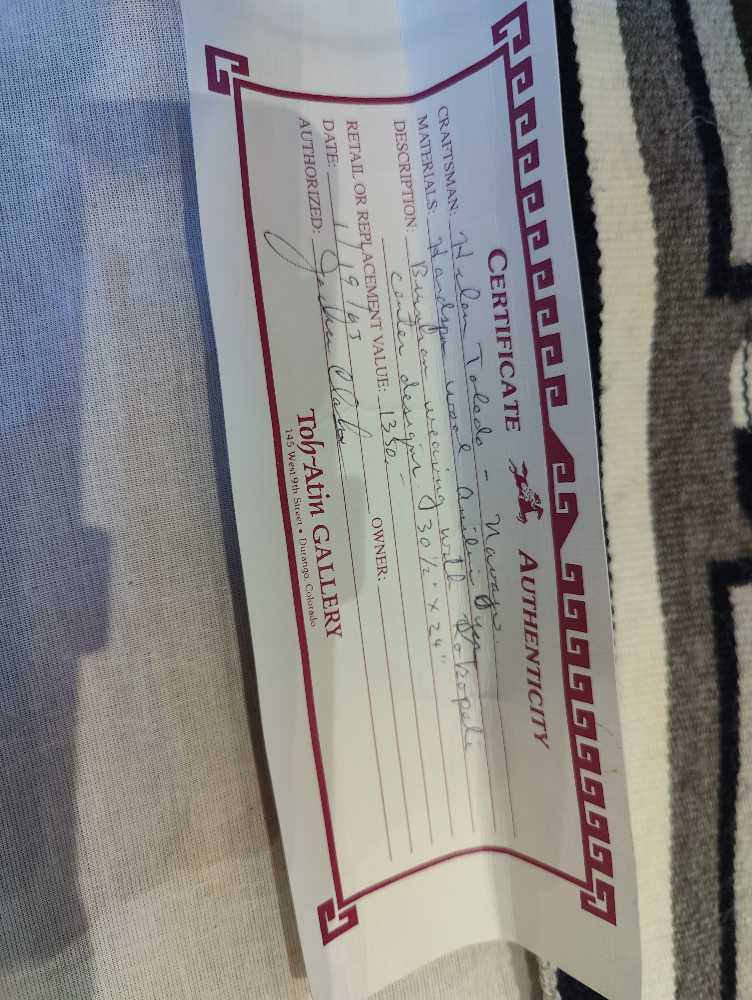 CERTIFICATE AUTHENTICITY
CRAFTSMAN: Helen Toledo - Navajo
MATERIALS: Handspun wool
DESCRIPTION: weaving with Kokopeli
center design 30 1/2" x 24"
RETAIL OR REPLACEMENT VALUE: 1350.- OWNER:
DATE:
AUTHORIZED: Jackson Clark
Toh-Atin GALLERY
145 West 9th Street • Durango, Colorado